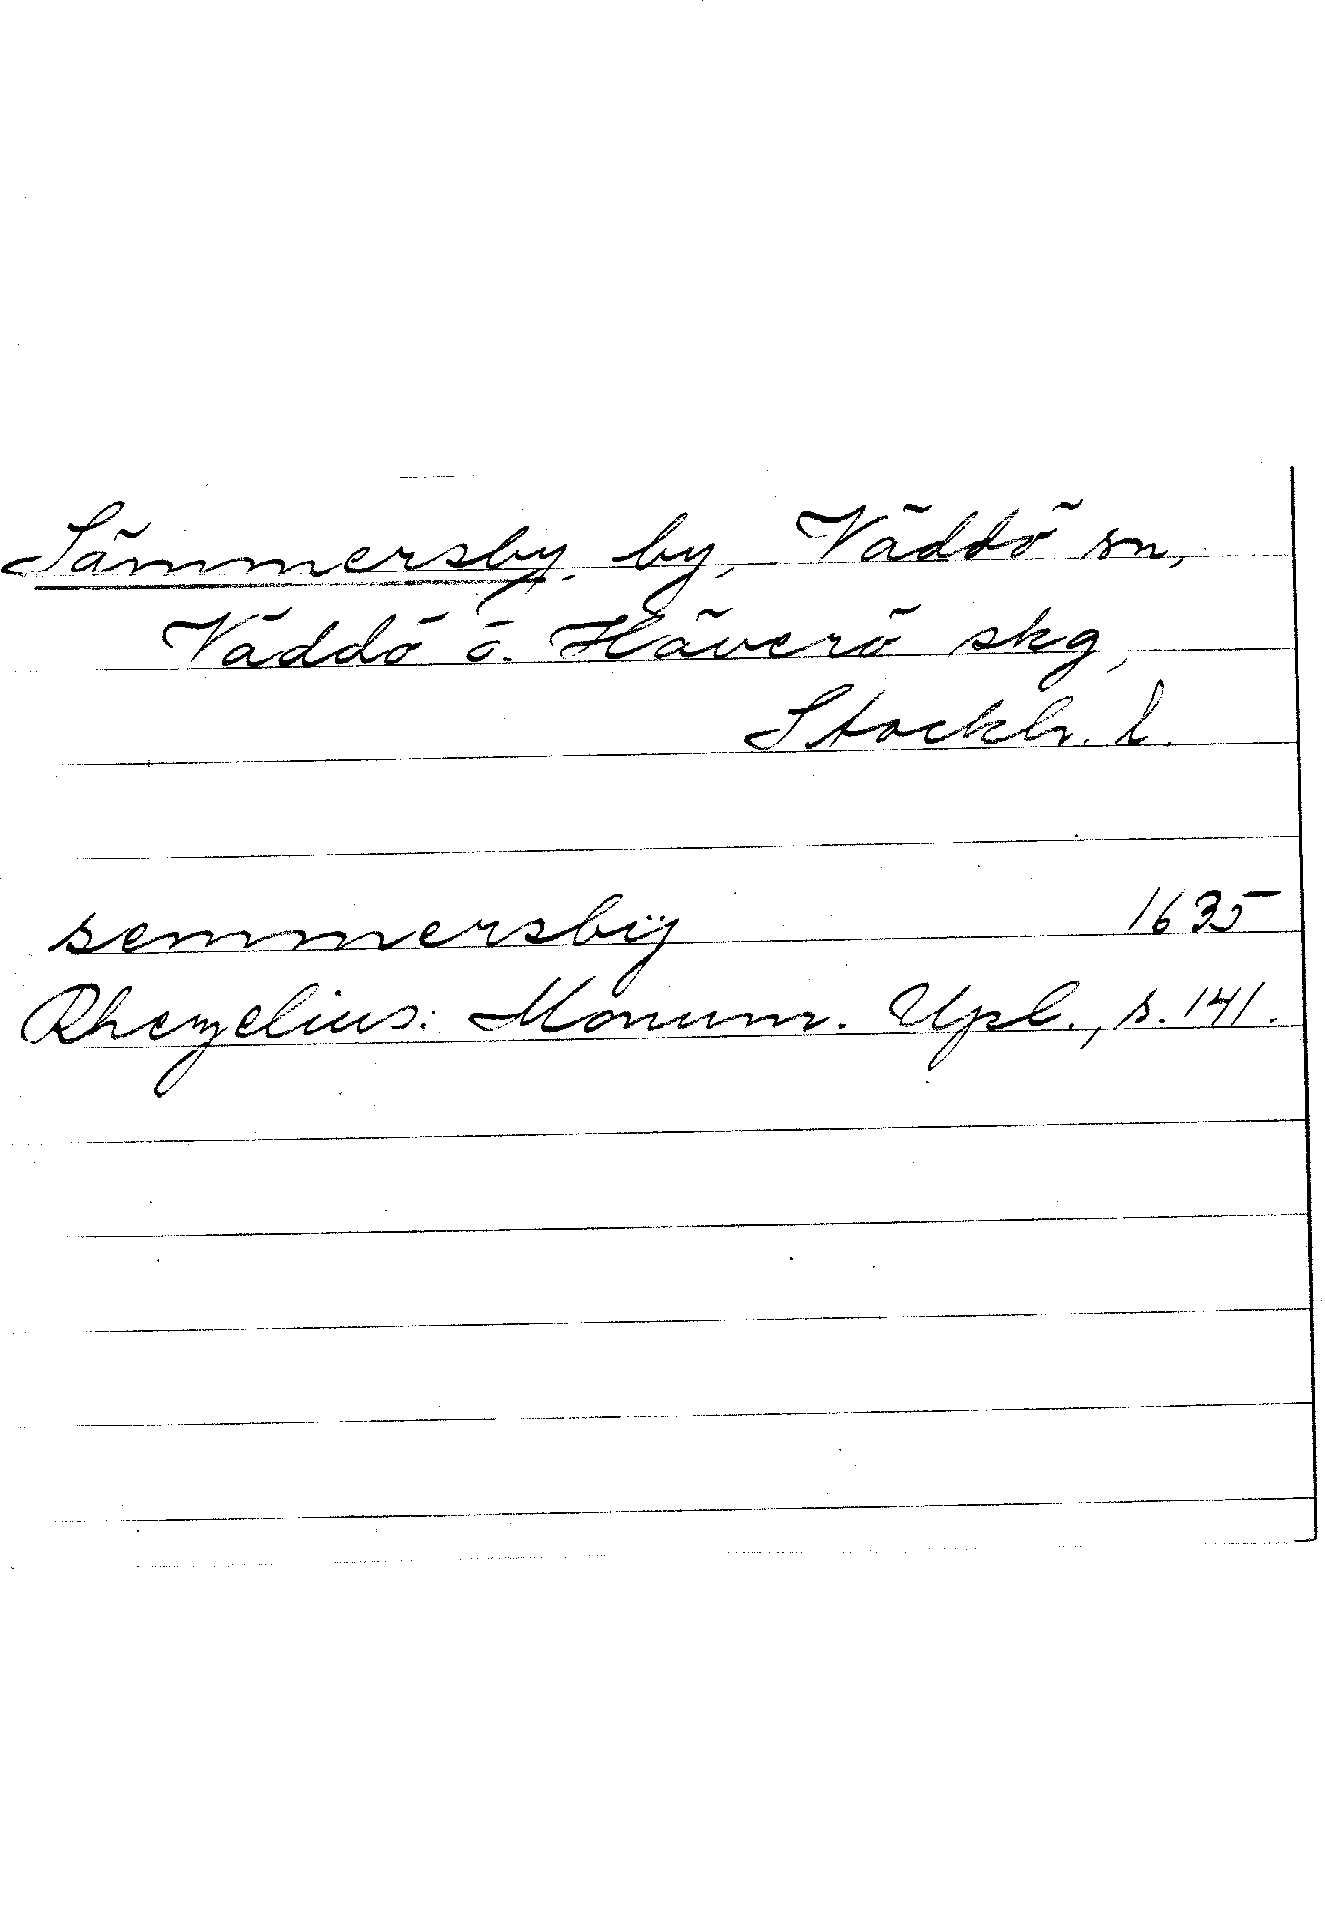 Sämmersby, by, Väddö sn,
Väddö o. Häverö skg,
Stockh. l.
semmersbÿ 1635
Rhezelius: Monum. Upl., s. 141.